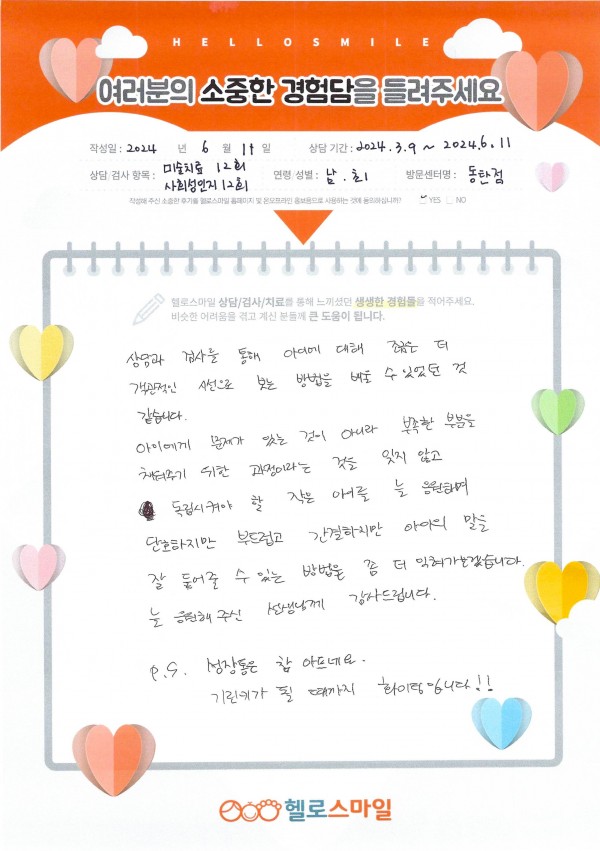 HELLOSMILE
여러분의 소중한 경험담을 들려주세요
작성일 : 2024 년 6 월 11 일 상담 기간 : 2024.3.9 ~ 2024.6.11
상담, 검사 항목 : 미술치료 12회 사회성인지 12회 연령 성별 : 남 . 초1 방문센터명 : 동탄점
작성해 주신 소중한 후기를 헬로스마일 홈페이지 및 온오프라인 홍보용으로 사용하는 것에 동의하십니까? YES NO
헬로스마일 상담/검사/치료를 통해 느끼셨던 생생한 경험들을 적어주세요.
비슷한 어려움을 겪고 계신 분들께 큰 도움이 됩니다.
상담과 검사를 통해 아이에 대해 조금은 더
객관적인 시선으로 보는 방법을 배울 수 있었던 것
같습니다.
아이에게 문제가 있는 것이 아니라 부족한 부분을
채워주기 위한 과정이라는 것을 잊지 않고
독립시켜야 할 작은 아이를 늘 응원하며
단호하지만 부드럽고 간결하지만 아이의 말을
잘 들어줄 수 있는 방법을 좀 더 익혀가보겠습니다.
늘 응원해 주신 선생님께 감사드립니다.
P.S. 성장통은 참 아프네요.
기린키가 될 때까지 화이팅입니다!!
헬로스마일